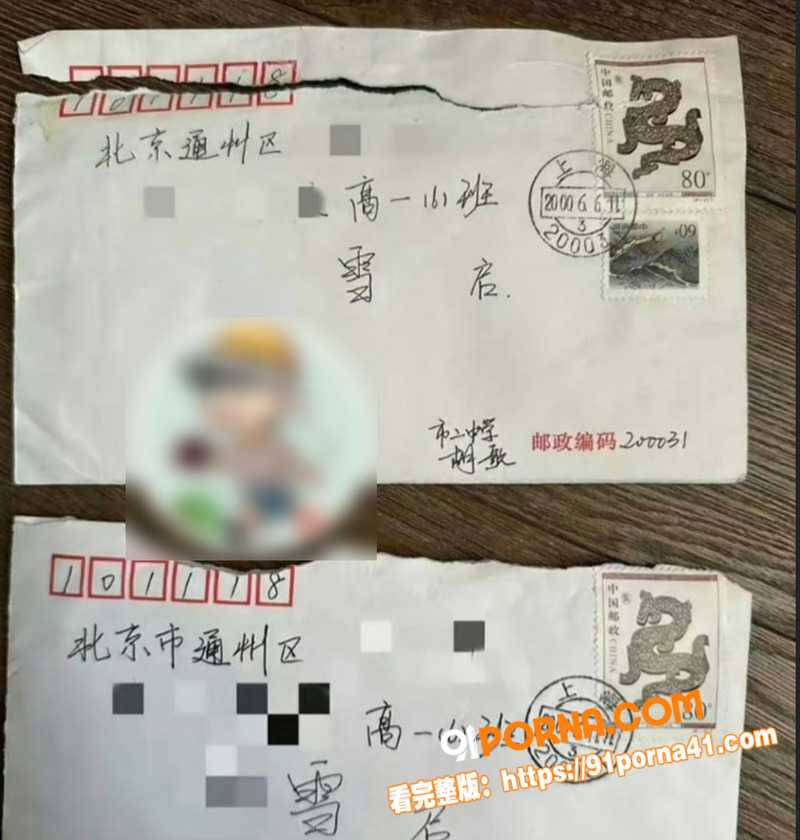 101118
北京通州区
高一(6)班
雪 启.
中国邮政
CHINA
80
上海
2000.6.6.11
3
20003
市二中学
胡歌
邮政编码 200031
101118
北京市通州区
高一(6)班
雪
启
中国邮政
CHINA
80
上海
3
91PORNA.COM
看完整版：https://91porna41.com